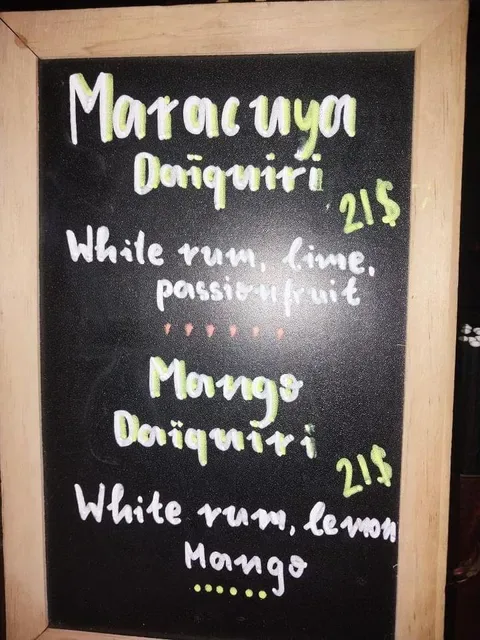 Maracuya
Daïquiri
21$
White rum, lime,
passionfruit
Mango
Daïquiri
21$
White rum, lemon
Mango